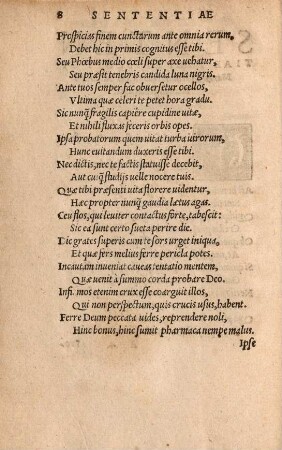 8 SENTENTIAE
Prospicias finem cunctarum ante omnia rerum,
Debet hic in primis cognitus esse tibi.
Seu Phœbus medio cœli super axe uehatur,
Seu præsit tenebris candida luna nigris.
Ante tuos semper fac obuersetur ocellos,
Vltima quæ celeri te petet hora gradu.
Sic nunq̃ fragilis capiêre cupidine uitæ,
Et nihili fluxas feceris orbis opes.
Ipsa probatorum quem uitat turba uirorum,
Hunc euitandum duxeris esse tibi.
Nec dictis, nec te factis statuisse decebit,
Aut cuiq̃ studijs uelle nocere tuis.
Quæ tibi præsenti uita florere uidentur,
Hæc propter nunq̃ gaudia lætus agas.
Ceu flos, qui leuiter contactus forte, tabescit:
Sic ea sunt certo sueta perire die.
Dic grates superis cum te sors urget iniqua,
Et quæ fers melius ferre pericla potes.
Incautam inueniat caueas tentatio mentem,
Quæ uenit à summo corda probare Deo.
Infirmos etenim crux esse coarguit illos,
Qui non perspectum, quis crucis usus, habent.
Ferre Deum peccata uides, reprendere noli,
Hinc bonus, hinc sumit pharmaca nempe malus.
Ipse